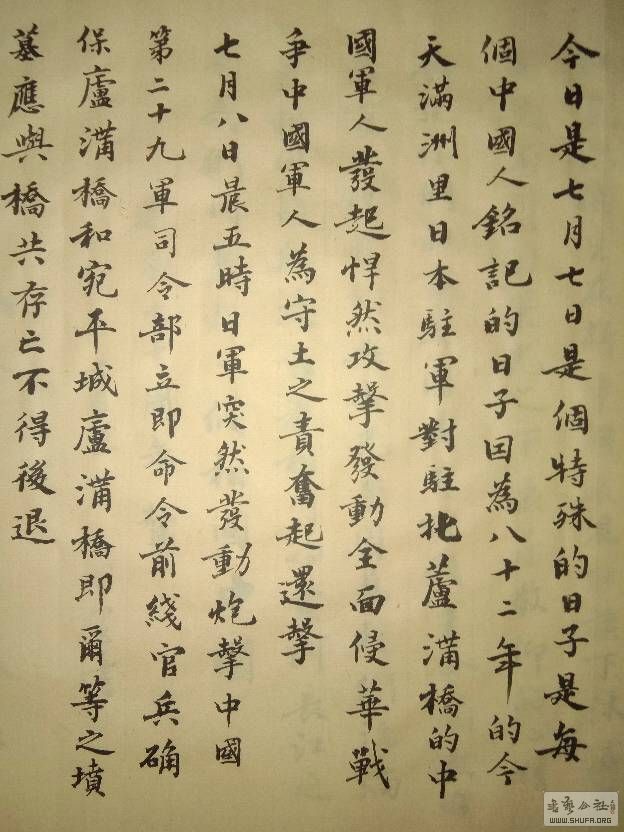 今日是七月七日是個特殊的日子是每
個中國人銘記的日子因為八十二年的今
天滿洲里日本駐軍對駐扎蘆溝橋的中
國軍人發起悍然攻擊發動全面侵華戰
爭中國軍人為守土之責奮起還擊
七月八日晨五時日軍突然發動炮擊中國
第二十九軍司令部立即命令前綫官兵确
保盧溝橋和宛平城盧溝橋即爾等之墳
墓應與橋共存亡不得後退
書藝公社
WWW.SHUFA.ORG